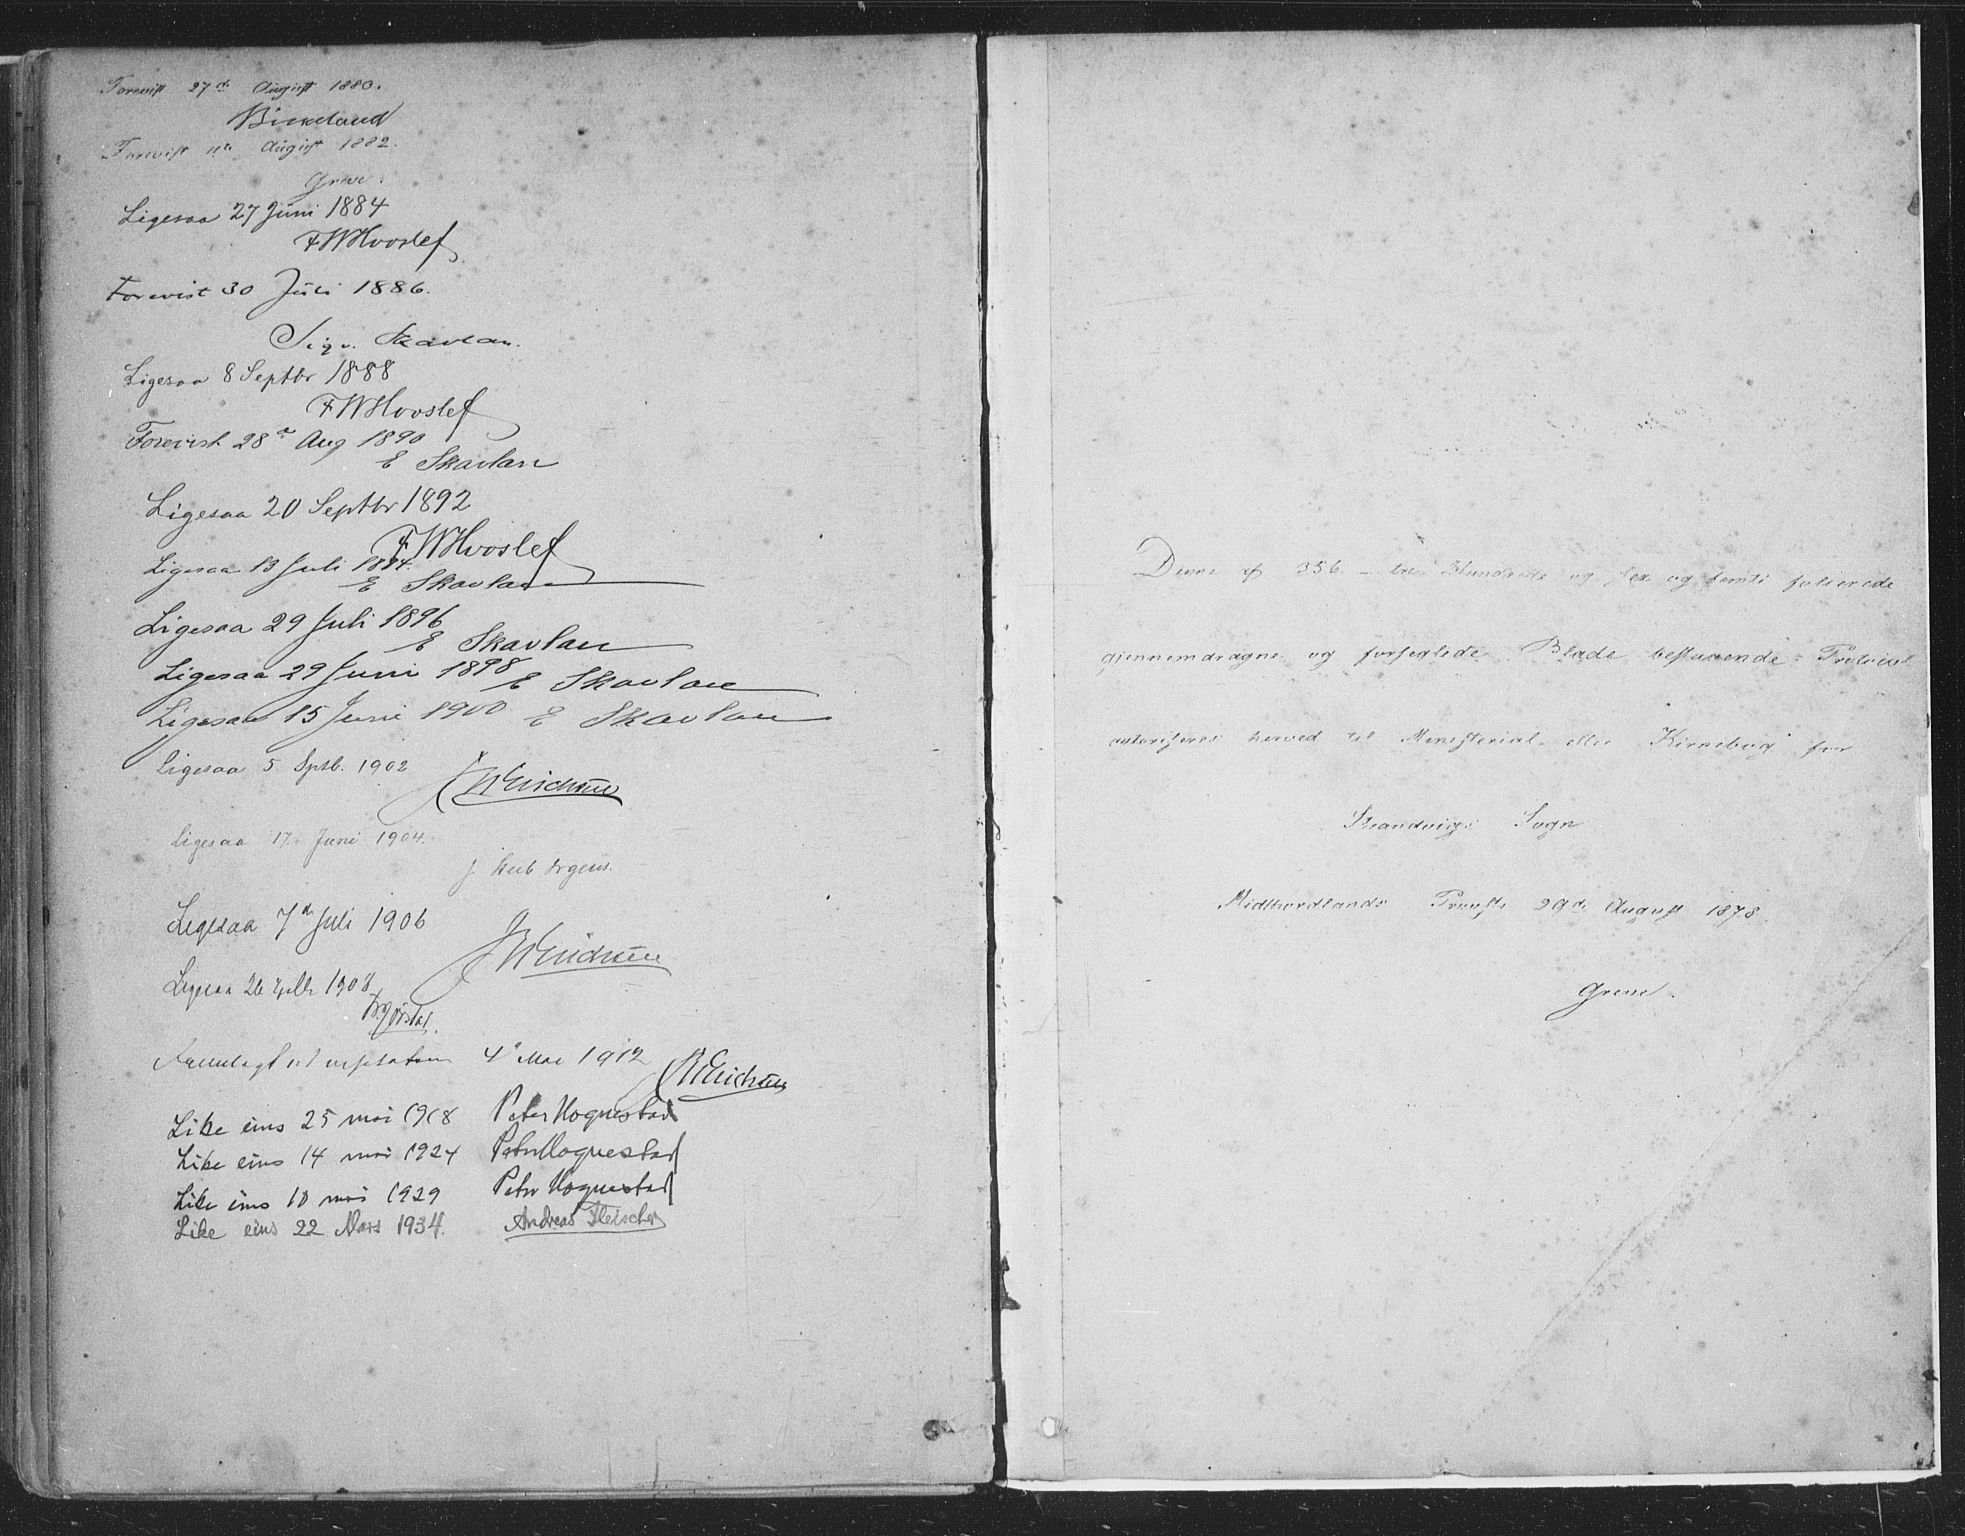 Forevist 27de August 1880.
Birkeland
Forevist 11te August 1882.
Greve.
Ligesaa 27 Juni 1884
F W Hvoslef
Forevist 30 Juli 1886.
Sigv. Skavlan.
Ligesaa 8 Septbr 1888
F W Hvoslef
Forevist 28de Aug 1890
E Skavlan
Ligesaa 20 Septbr 1892
F W Hvoslef
Ligesaa 13 Juli 1894.
E Skavlan
Ligesaa 29 Juli 1896
E Skavlan
Ligesaa 29 Juni 1898 E Skavlan
Ligesaa 15 Juni 1900 E Skavlan
Ligesaa 5. Septb. 1902
Erichsen
Ligesaa 17. Juni 1904.
J. Irgens.
Ligesaa 7de Juli 1906
Erichsen
Ligesaa 26 1908
Fremlagt ved visitatsen 4de Mai 1912 Erichsen
Like eins 25 mai 1918 Peter Hognestad
Like eins 14 mai 1924 Peter Hognestad
Like eins 10 mai 1929 Peter Hognestad
Like eins 22 Mars 1934. Andreas Fleischer
Denne af 356 - tre Hundrede og sex og femti folierede
gjennemdragne og forseglede Blade bestaaende Protocol
autoriseres herved til Ministerial- eller Kirkebog for
Strandvigs Sogn
Midthordlands Provsti 29de August 1878.
Greve.